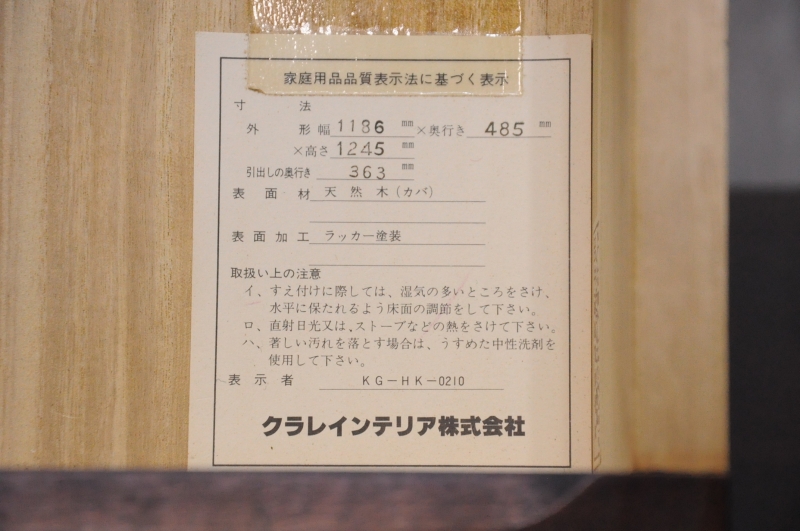 家庭用品品質表示法に基づく表示
寸法
外形 幅 1186 mm ×奥行き 485 mm
×高さ 1245 mm
引出しの奥行き 363 mm
表面材 天然木(カバ)
表面加工 ラッカー塗装
取扱い上の注意
イ、すえ付けに際しては、湿気の多いところをさけ、
水平に保たれるよう床面の調節をして下さい。
ロ、直射日光又は、ストーブなどの熱をさけて下さい。
ハ、著しい汚れを落とす場合は、うすめた中性洗剤を
使用して下さい。
表示者 KG-HK-0210
クラレインテリア株式会社